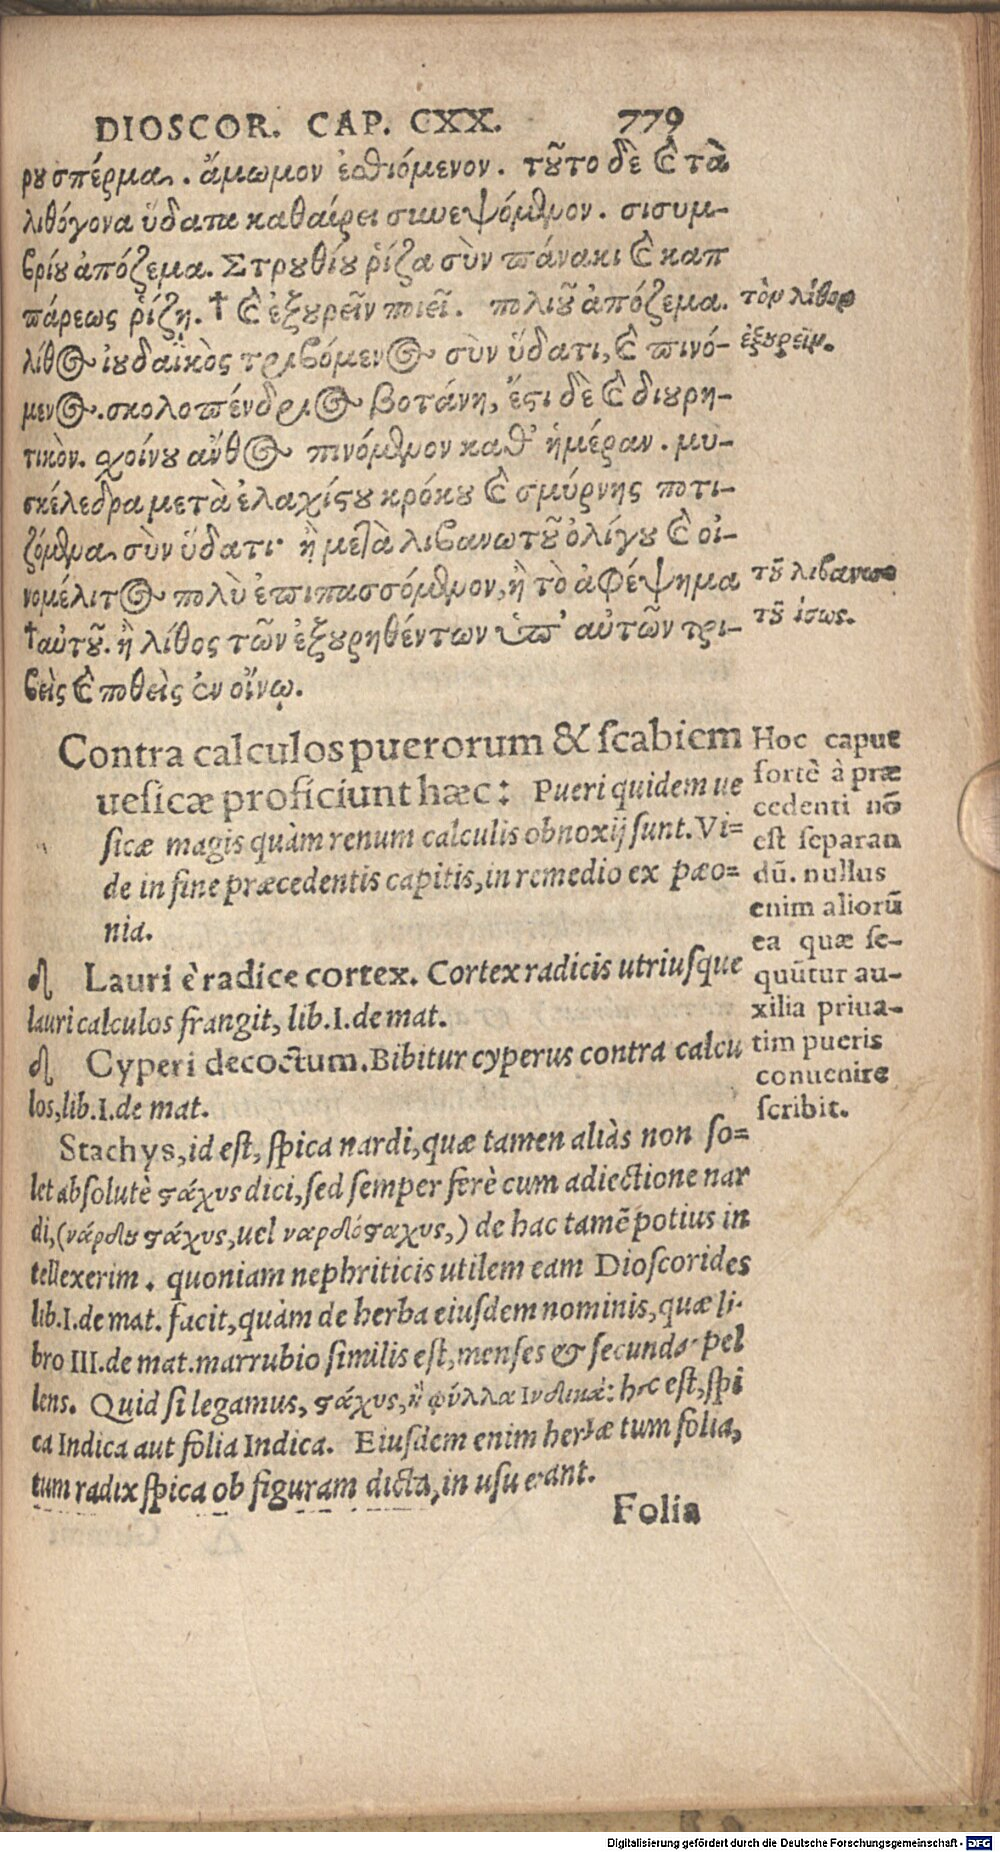 DIOSCOR. CAP. CXX. 779
ρου σπέρμα. ἄμωμον ἐσθιόμενον. τοῦτο δὲ καὶ τὰ
λιθόγονα ὕδατα καθαίρει συνεψόμενον. σισυμ-
βρίου ἀπόζεμα. Στρουθίου ῥίζα σὺν πάνακι καὶ καπ
πάρεως ῥίζῃ. † καὶ ἐξουρεῖν ποιεῖ. πολιοῦ ἀπόζεμα.
λίθος ἰουδαϊκὸς τριβόμενος σὺν ὕδατι, καὶ πινό-
μενος. σκολοπένδριος βοτάνη, ἔστι δὲ καὶ διουρη-
τικὸν. σχοίνου ἄνθος πινόμενον καθ' ἡμέραν. μυ-
σκέλεδρα μετὰ ἐλαχίστου κρόκου καὶ σμύρνης ποτι-
ζόμενα σὺν ὕδατι· ἢ μετὰ λιβανωτοῦ ὀλίγου καὶ οἰ-
νομέλιτος πολὺ ἐπιπασσόμενον, ἢ τὸ ἀφέψημα
†αὐτοῦ. ἢ λίθος τῶν ἐξουρηθέντων ὑπ' αὐτῶν τρι-
βεὶς καὶ ποθεὶς ἐν οἴνῳ.
τὸν λίθον
ἐξουρεῖν.
τοῦ λιβανω
τοῦ ἴσως.
Contra calculos puerorum & scabiem
uesicæ proficiunt hæc: Pueri quidem ue
sicæ magis quàm renum calculis obnoxij sunt. Vi=
de in fine præcedentis capitis, in remedio ex pæo=
nia.
Hoc caput
fortè à præ
cedenti nõ
est separan
dũ. nullus
enim aliorũ
ea quæ se-
quũtur au-
xilia priua-
tim pueris
conuenire
scribit.
Lauri è radice cortex. Cortex radicis utriusque
lauri calculos frangit, lib. I. de mat.
Cyperi decoctum. Bibitur cyperus contra calcu
los, lib. I. de mat.
Stachys, id est, spica nardi, quæ tamen aliàs non so=
let absolutè στάχυς dici, sed semper ferè cum adiectione nar
di, (νάρδου στάχυς, uel ναρδόσταχυς,) de hac tamẽ potius in
tellexerim. quoniam nephriticis utilem eam Dioscorides
lib. I. de mat. facit, quàm de herba eiusdem nominis, quæ li-
bro III. de mat. marrubio similis est, menses & secundas pel
lens. Quid si legamus, στάχυς, ἢ φύλλα Ινδικά: hoc est, spi
ca Indica aut folia Indica. Eiusdem enim herbæ tum folia,
tum radix spica ob figuram dicta, in usu erant.
Folia
Digitalisierung gefördert durch die Deutsche Forschungsgemeinschaft - DFG